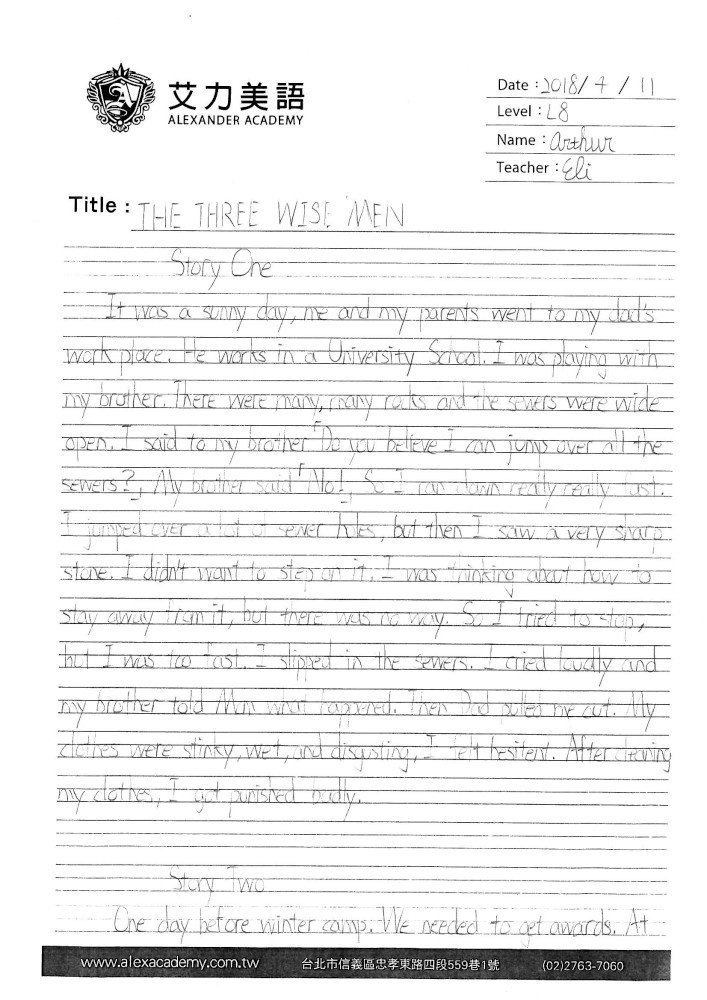 艾力美語
ALEXANDER ACADEMY
Date : 2018/4/11
Level : L8
Name : Arthur
Teacher : Eli
Title : THE THREE WISE MEN
Story One
It was a sunny day, me and my parents went to my dad's
work place. He works in a University School. I was playing with
my brother. There were many, many rocks and the sewers were wide
open. I said to my brother「Do you believe I can jump over all the
sewers?」 My brother said「No!」 So I ran down really really fast.
I jumped over a lot of sewer holes, but then I saw a very sharp
stone. I didn't want to step on it. I was thinking about how to
stay away from it, but there was no way. So I tried to stop,
but I was too fast. I slipped in the sewers. I cried loudly and
my brother told Mom what happened. Then Dad pulled me out. My
clothes were stinky, wet, and disgusting, I felt hesitent. After cleaning
my clothes, I got punished badly.
Story Two
One day before winter camp. We needed to get awards. At
www.alexacademy.com.tw
台北市信義區忠孝東路四段559巷1號
(02)2763-7060